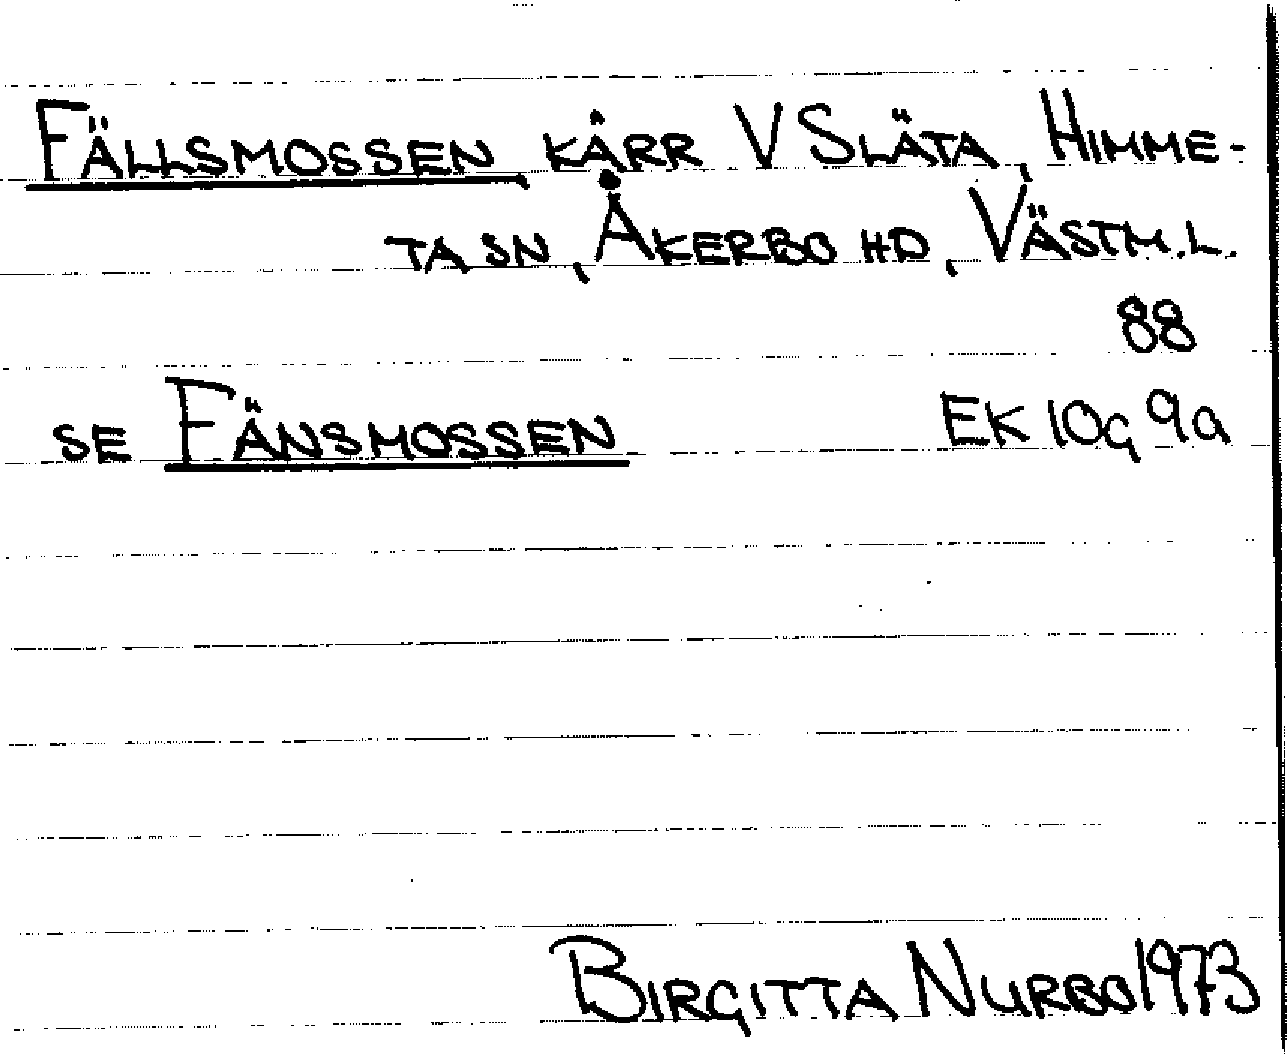 FÄLLSMOSSEN, KÄRR V SLÄTA, HIMME-
TA SN, ÅKERBO HD, VÄSTM.L.
88
SE FÄNSMOSSEN EK 10G 9a
BIRGITTA NURBO 1973